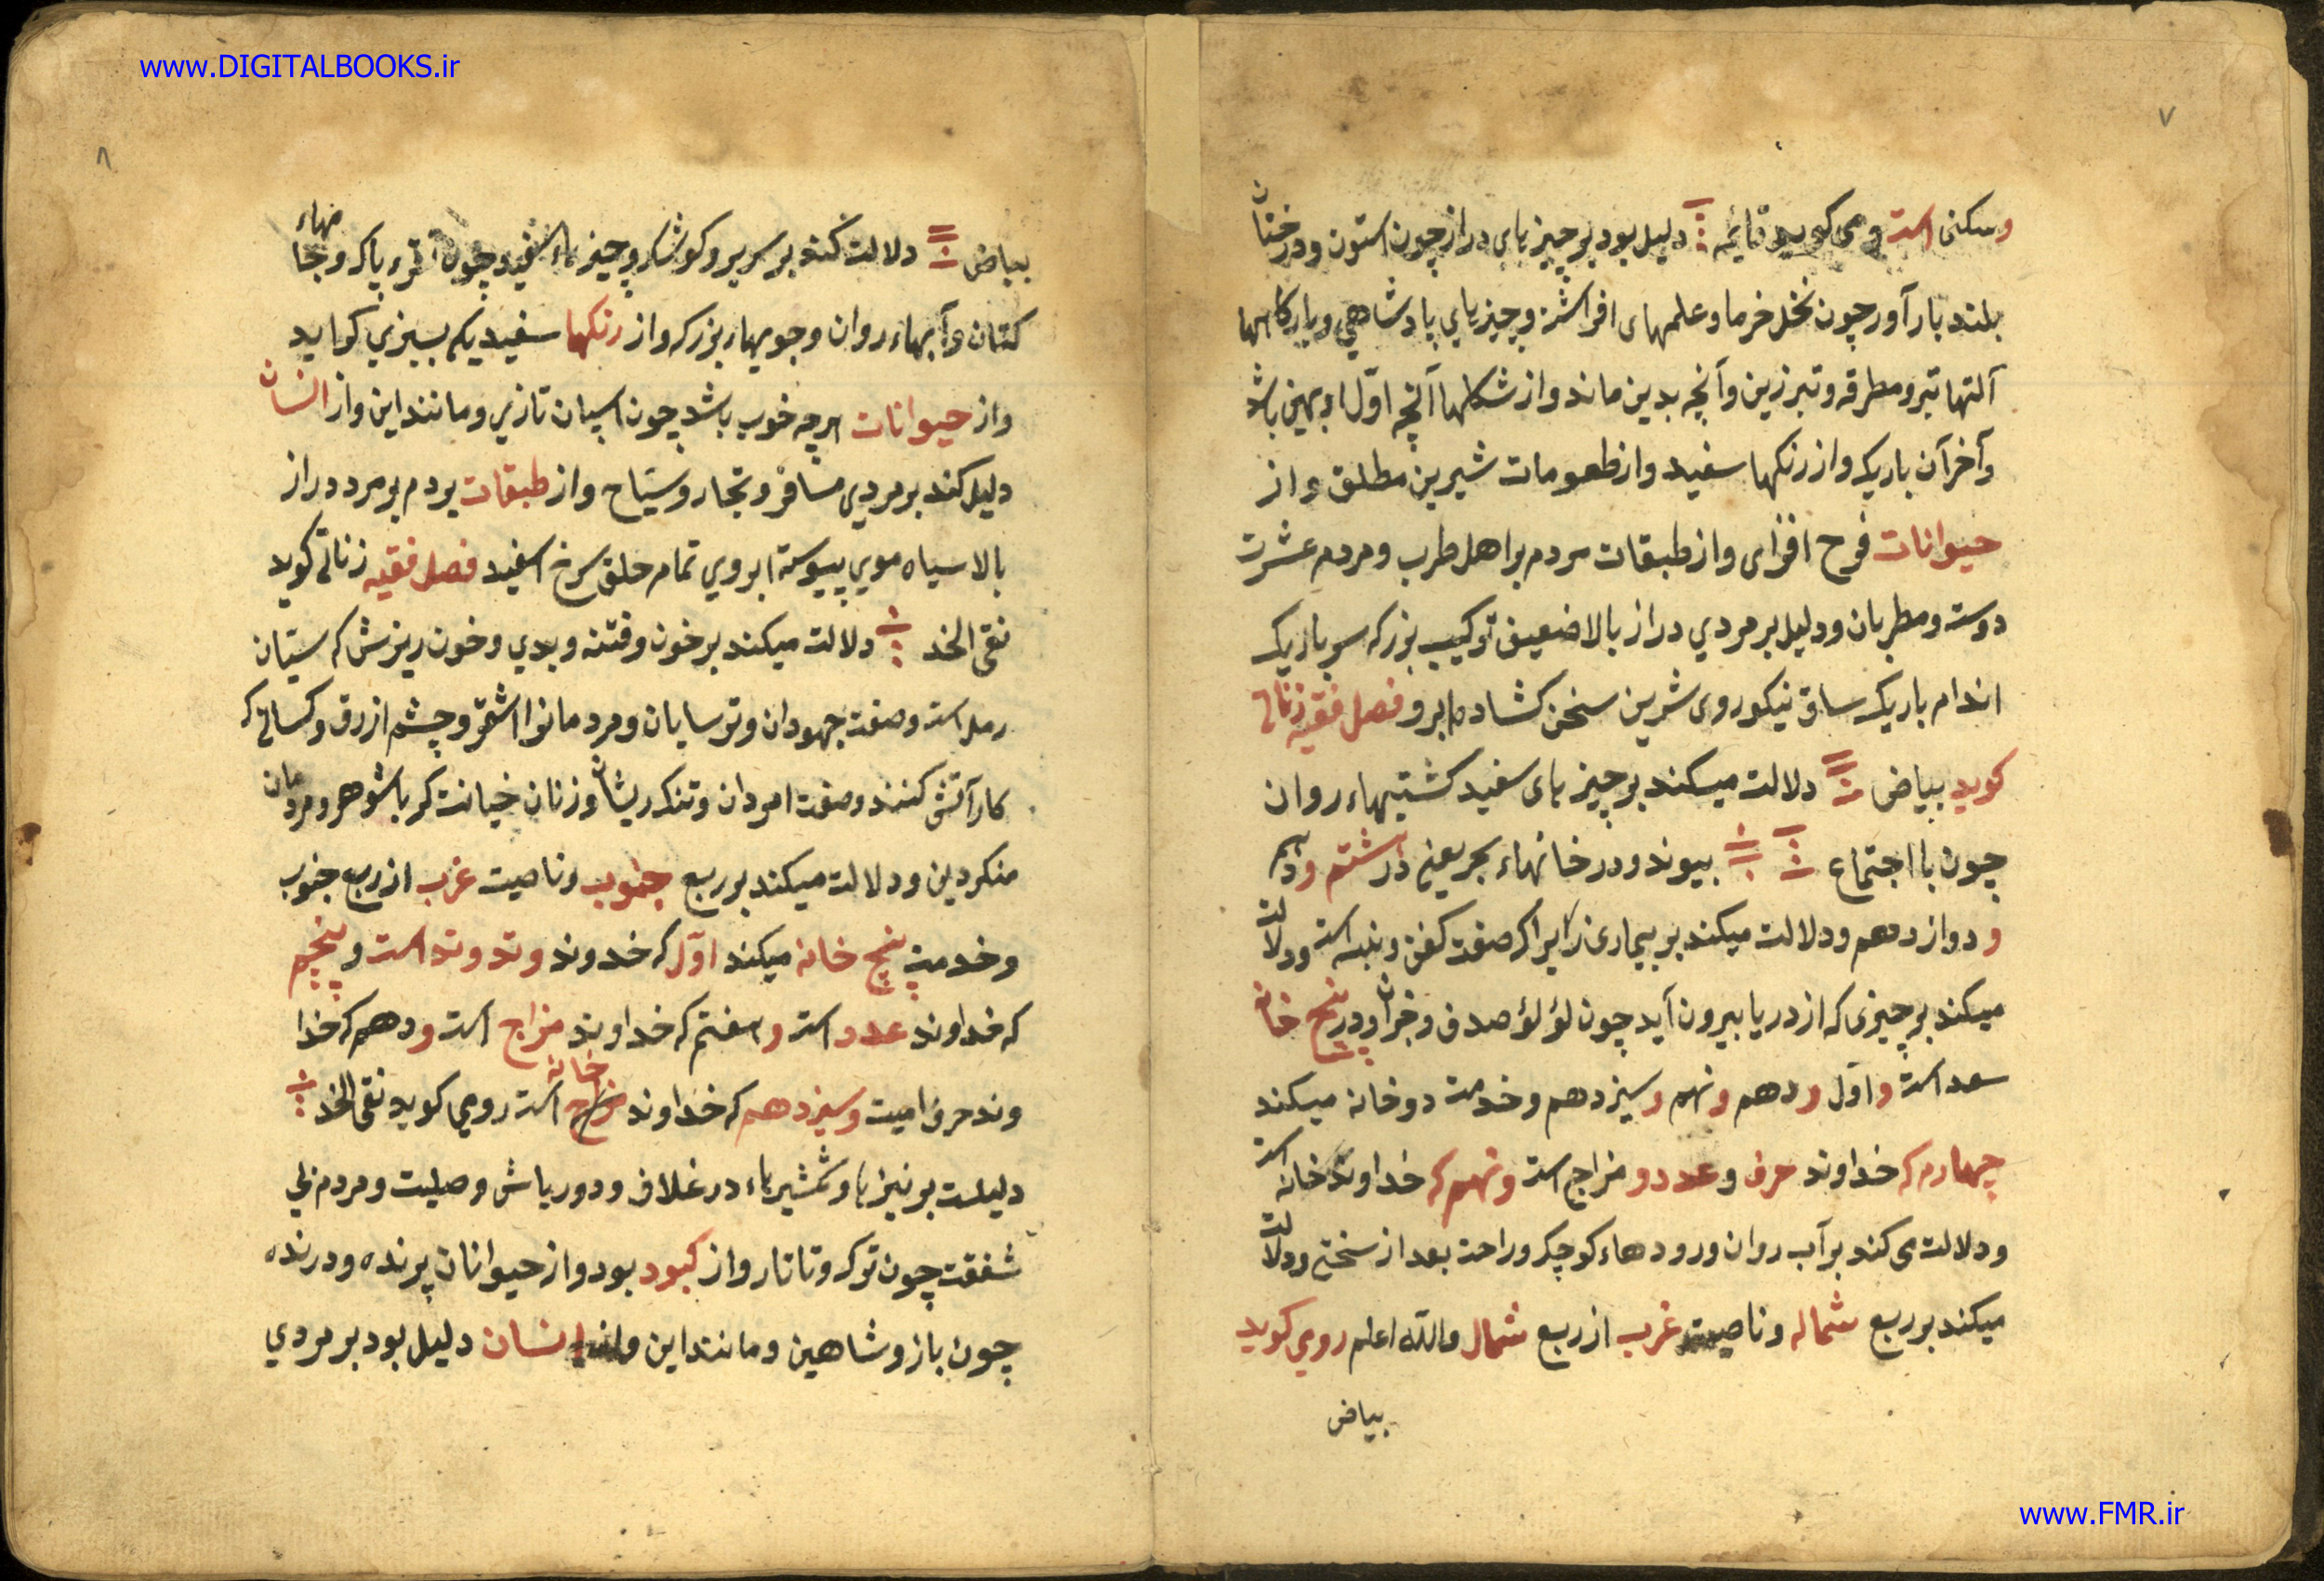 www.DIGITALBOOKS.ir
۷
وسکنی است و می کوید قایمه دلیل بود بر چیز های دراز چون استون و درختان
بلند بار آور چون نخل خرما و علمهای افراشته و چیز های پادشاهی و بارکاهها
آلتها تبر و مطرقه و تبرزین و آنچه بدین ماند و از شکلها آنچه اوّل او پهن باشد
و آخر آن باریک و از رنکها سفید و از طعومات شیرین مطلق و از
حیوانات فرح افزای و از طبقات مردم بر اهل طرب و مردم عشرت
دوست و مطربان و دلیل بر مردی دراز بالا ضعیف ترکیب بزرک سر باریک
اندام باریک ساق نیکو روی شرین سخن کشاده ابرو فصل فقیه زناتی
کوید بیاض دلالت میکند بر چیز های سفید کشتیهاء روان
چون با اجتماع بیوند و در خانهاء بحر یعنی در هشتم و
و دوازدهم و دلالت میکند بر بیماری زیرا که صفت کفن و پنبه است و دلالت
میکند بر چیزی که از دریا بیرون آید چون لؤلؤ صدف و و در پنج خانه
سعد است و اوّل و دهم و نهم و سیزدهم و خدمت دو خانه میکند
چهارم که خداوند حرف و عدد و مزاج است و نهم که خداوند خانه است
و دلالت می کند بر آب روان و رودهاء کوچک و راحت بعد از سختی و دلالت
میکند بر ربع شماله و ناصیت غرب از ربع شمال والله اعلم رومی کوید
بیاض
۸
بیاض دلالت کند بر سریر و کوشک و چیز هاء سفید چون نقره پاک و جامهاء
کتان و آبهاء روان و جویهاء بزرک و از رنکها سفیدیکه بسبزی کراید
و از حیوانات هر چه خوب باشد چون اسپان تازی و مانند این و از انسان
دلیل کند بر مردی مسافر و تجار و سیّاح و از طبقات مردم بر مرد دراز
بالا سیاه موی پیوسته ابروی تمام خلق سرخ اسفید فصل فقیه زناتی کوید
نقی الخد دلالت میکند بر خون و فتنه و بدی و خون ریزش که ستیان
رمل است و صفت جهودان و ترسایان و مردمانرا اشقر و چشم ازرق و کسانی که
کار آتش کنند و صفت امردان و تنک ریشان و زنان خیانت کر با شوهر و مردمان
منکر دین و دلالت میکند بر ربع جنوب و ناصیت غرب از ربع جنوب
و خدمت پنج خانه میکند اوّل که خداوند وتد وتد است و پنجم
که خداوند عدد است و هفتم که خداوند مزاج است و دهم که خدا
وند حرف است و سیزدهم که خداوند خانه است رومی کوید نقی الخد
دلیلست بر نیزها و شمشیرهاء در غلاف و دورباش و صلیت و مردم بی
شفقت چون ترک و تاتار و از کبود بود و از حیوانان پرنده و درنده
چون باز و شاهین و مانند این و از انسان دلیل بود بر مردی
www.FMR.ir